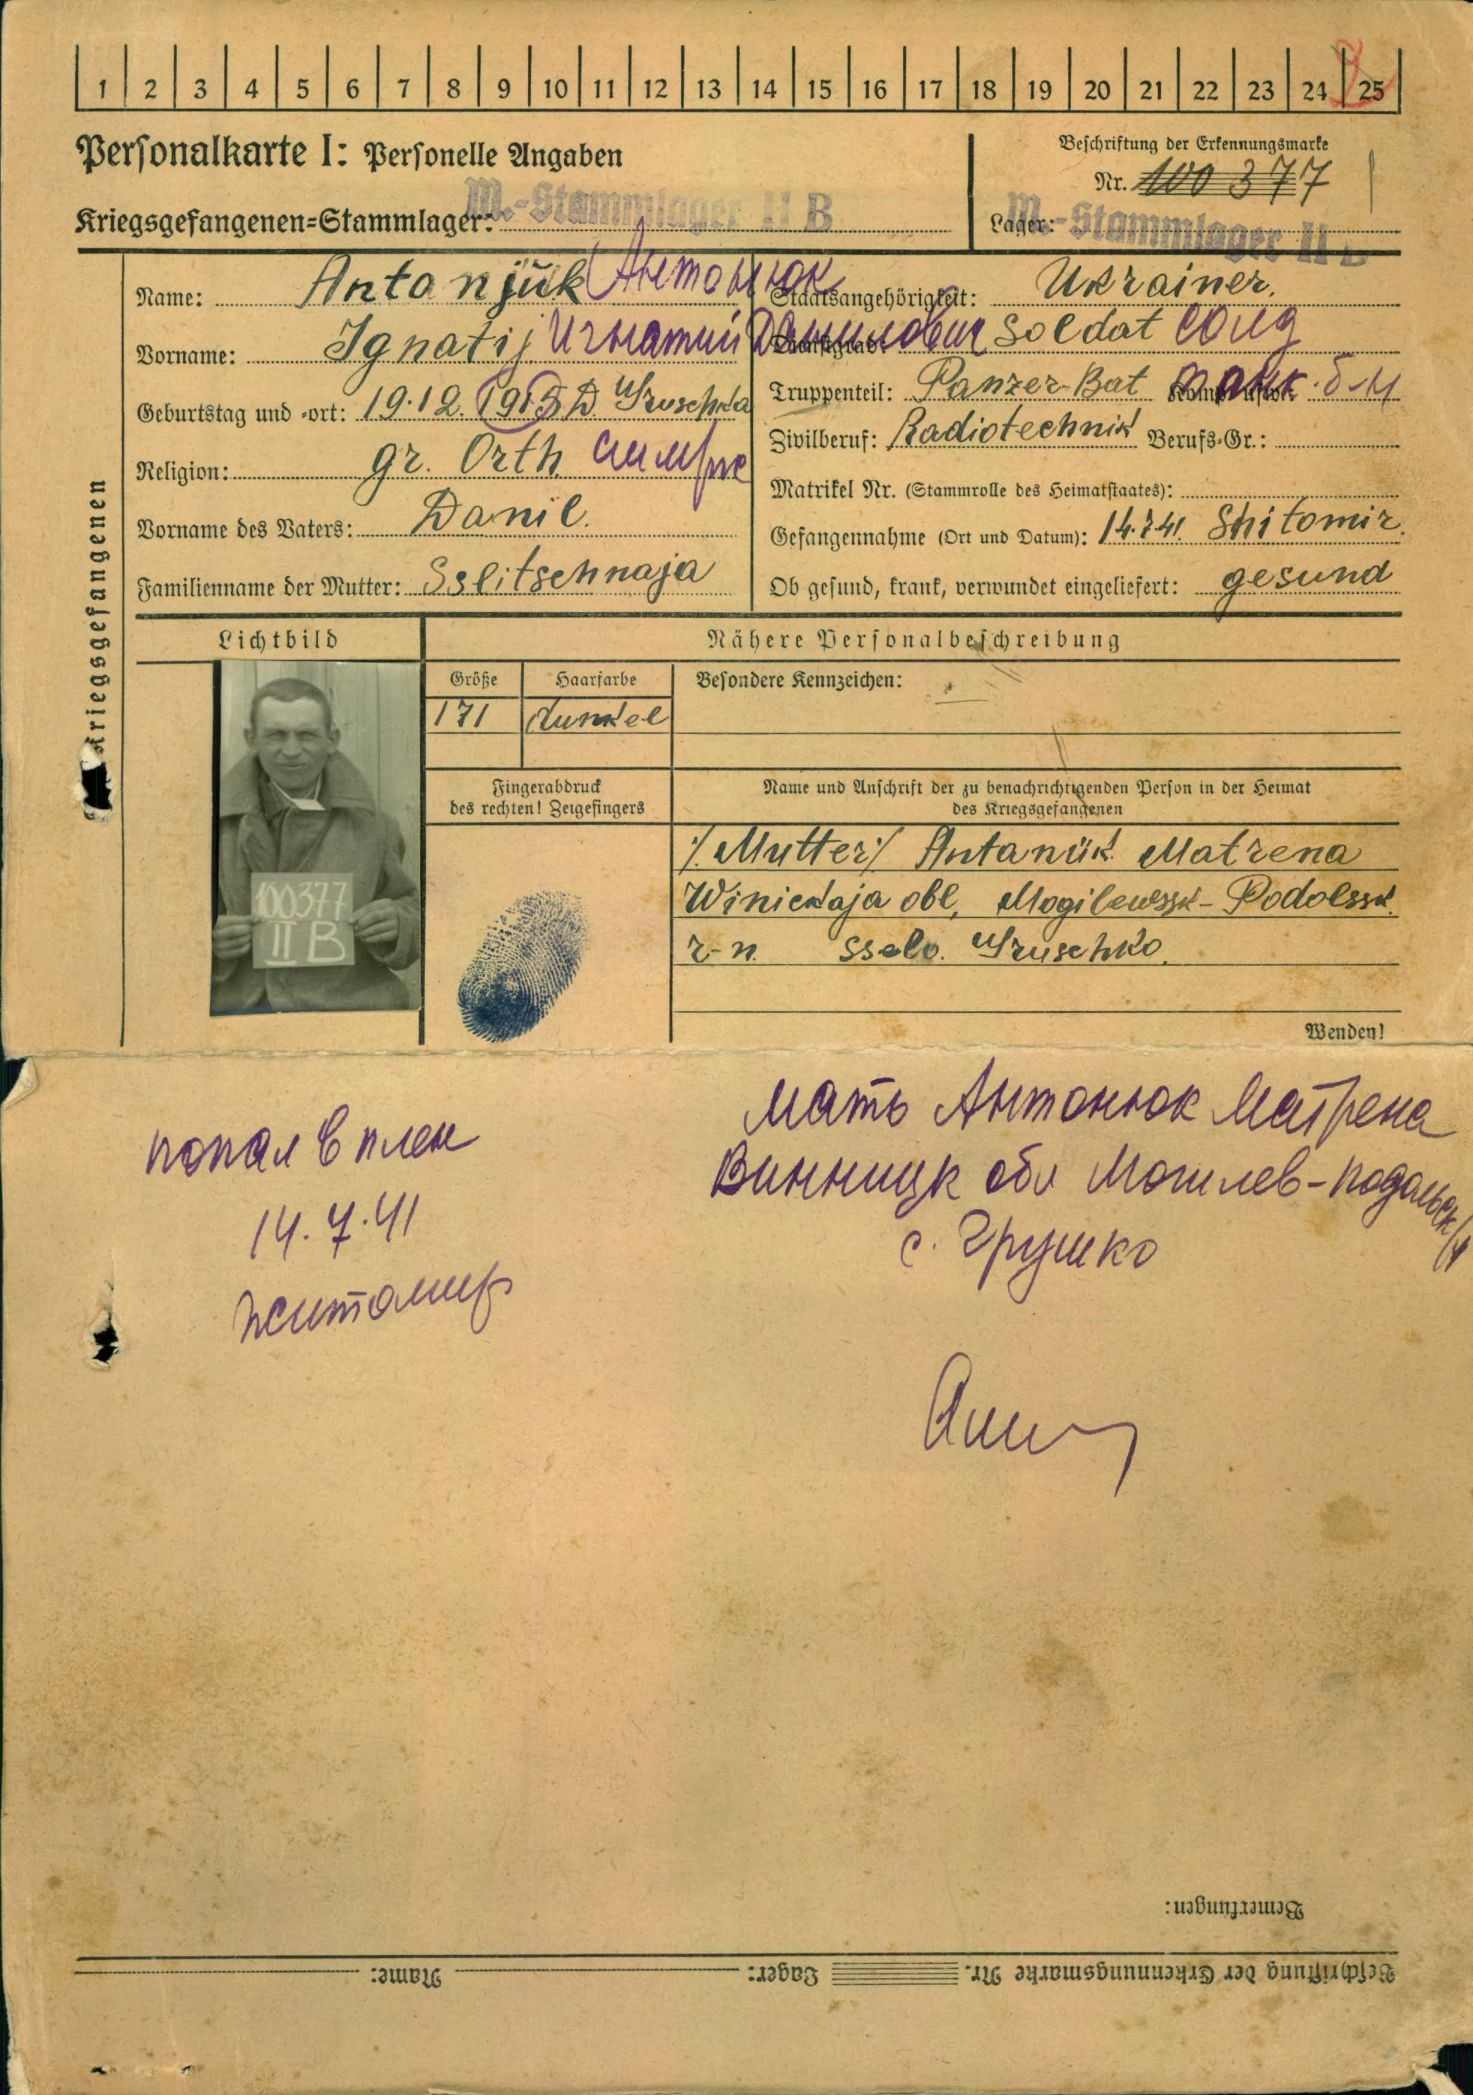 1 2 3 4 5 6 7 8 9 10 11 12 13 14 15 16 17 18 19 20 21 22 23 24 25
2
Personalkarte I: Personelle Angaben
Kriegsgefangenen=Stammlager: M.-Stammlager II B
Beschriftung der Erkennungsmarke
Nr. 100377
Lager: M.-Stammlager II B
Kriegsgefangenen
Name: Antanjuk Антонюк
Vorname: Ignatij Игнатий Данилович
Geburtstag und -ort: 19.12.1913
Religion: gr. Orth.
Vorname des Vaters: Danil.
Familienname der Mutter: Sslitschnaja
Staatsangehörigkeit: Ukrainer.
Dienstgrad: Soldat солд
Truppenteil: Panzer-Bat танк. б-н
Zivilberuf: Radiotechnik Berufs-Gr.:
Matrikel Nr. (Stammrolle des Heimatstaates):
Gefangennahme (Ort und Datum): 14.7.41. Shitomir.
Ob gesund, krank, verwundet eingeliefert: gesund
Lichtbild
Nähere Personalbeschreibung
Größe
Haarfarbe
Besondere Kennzeichen: -
171
dunkel
100377
II B
Fingerabdruck
des rechten! Zeigefingers
Name und Anschrift der zu benachrichtigenden Person in der Heimat
des Kriegsgefangenen
/.Mutter/ Antanük Matrena
Winickaja obl, Mogilewssk-Podolssk.
r-n. sselo. Gruschko.
Wenden!
попал в плен
14.7.41
житомир
мать Антонюк Матрена
Винницк обл Могилев-подольск
с. Грушко
Bemerkungen:
Beschriftung der Erkennungsmarke Nr. Lager: Name: